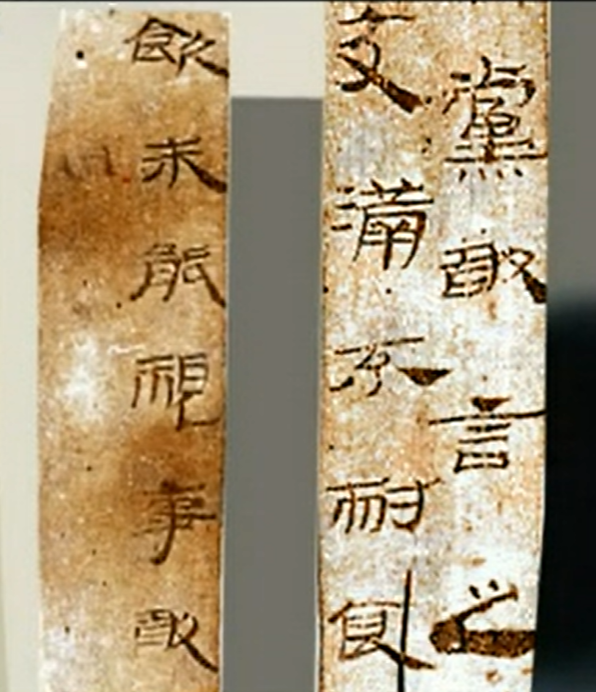 黨敢言之
丈滿不耐食
飲未能視事敢